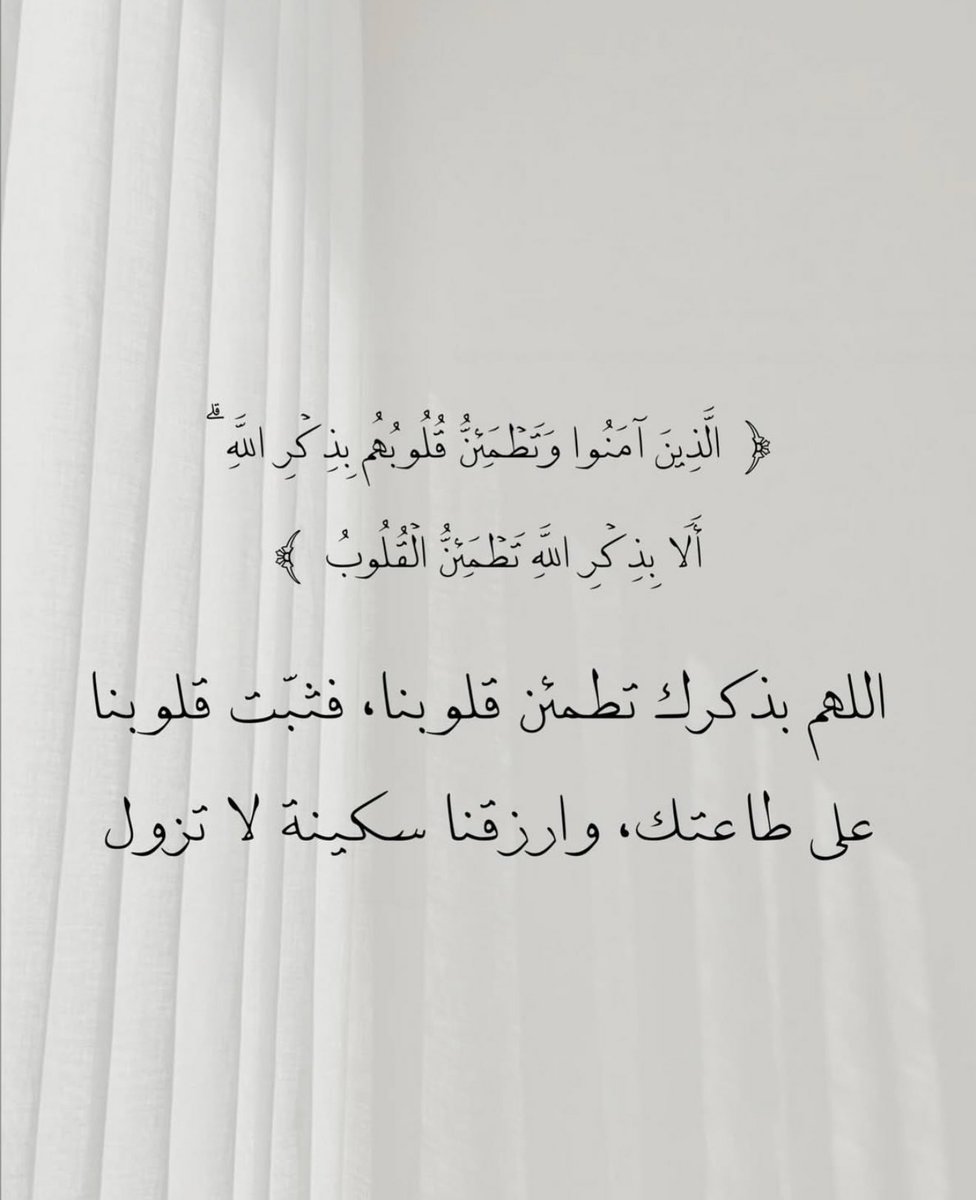 ﴿ الَّذِينَ آمَنُوا وَتَطْمَئِنُّ قُلُوبُهُم بِذِكْرِ اللَّهِ ۗ
أَلَا بِذِكْرِ اللَّهِ تَطْمَئِنُّ الْقُلُوبُ ﴾
اللهم بذكرك تطمئن قلوبنا، فثبّت قلوبنا
على طاعتك، وارزقنا سكينة لا تزول